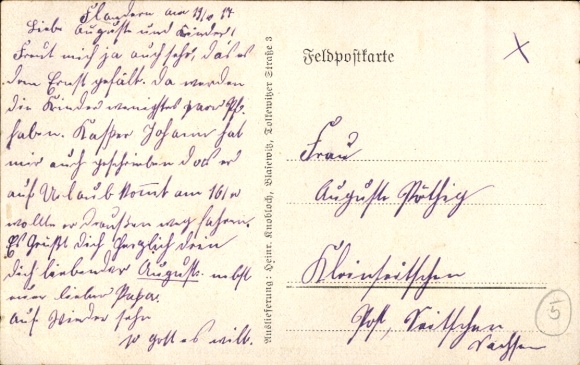 Flandern am 19/10 17
Liebe Auguste und Kinder!
Freut mich ja auch sehr, das es
dem Ernst gefält. da werden
die Kinder wenigstes paar Pf.
haben. Kasper Johann hat
mir auch geschrieben das er
auf Urlaub kommt am 16/10
wollte er draußen weg fahren.
Es Grüßt dich Herzlich dein
dich liebender August nebst
euer lieber Papa.
Auf Wieder sehn
so Gott es will.
Auslieferung: Heinr. Knobloch, Blasewitz, Tolkewitzer Straße 3
Feldpostkarte
Frau
Auguste
Kleinseitschen
Post, Seitschen
Sachsen
5